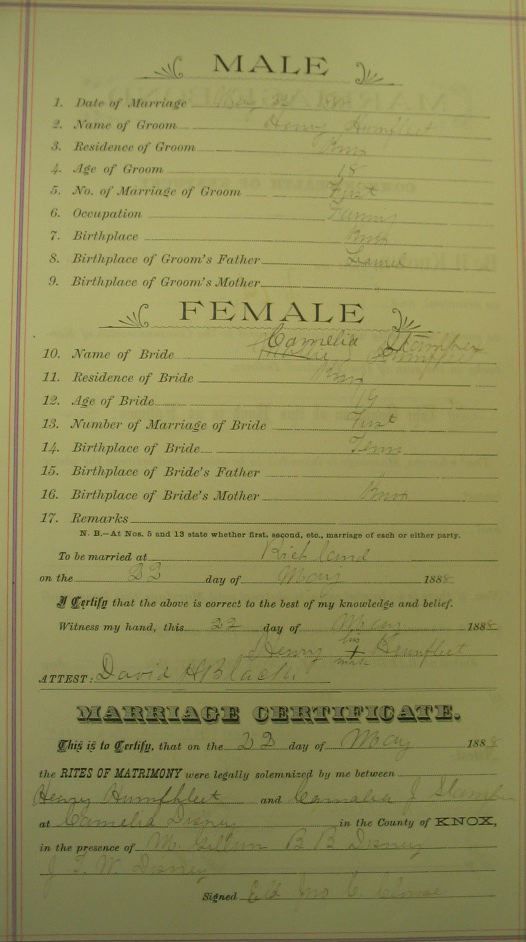 MALE
1. Date of Marriage May 22 188
2. Name of Groom Henry Humfleet
3. Residence of Groom Knox
4. Age of Groom 18
5. No. of Marriage of Groom First
6. Occupation Farmer
7. Birthplace Knox
8. Birthplace of Groom's Father Laurel
9. Birthplace of Groom's Mother
FEMALE
Camelia
10. Name of Bride
11. Residence of Bride Knox
12. Age of Bride 19
13. Number of Marriage of Bride First
14. Birthplace of Bride Tenn
15. Birthplace of Bride's Father
16. Birthplace of Bride's Mother Knox
17. Remarks
N. B.—At Nos. 5 and 13 state whether first, second, etc., marriage of each or either party.
To be married at Richland
on the 22 day of May 1888
I Certify that the above is correct to the best of my knowledge and belief.
Witness my hand, this 22 day of May 1888
his
Henry + Humfleet
mark
ATTEST: David H Black
MARRIAGE CERTIFICATE.
This is to Certify, that on the 22 day of May 1888
the RITES OF MATRIMONY were legally solemnized by me between
Henry Humphfleet and Camalia J
at Camelia Disney in the County of KNOX,
in the presence of M. B B Disney
J F. W. Disney
Signed Eld Jno C.